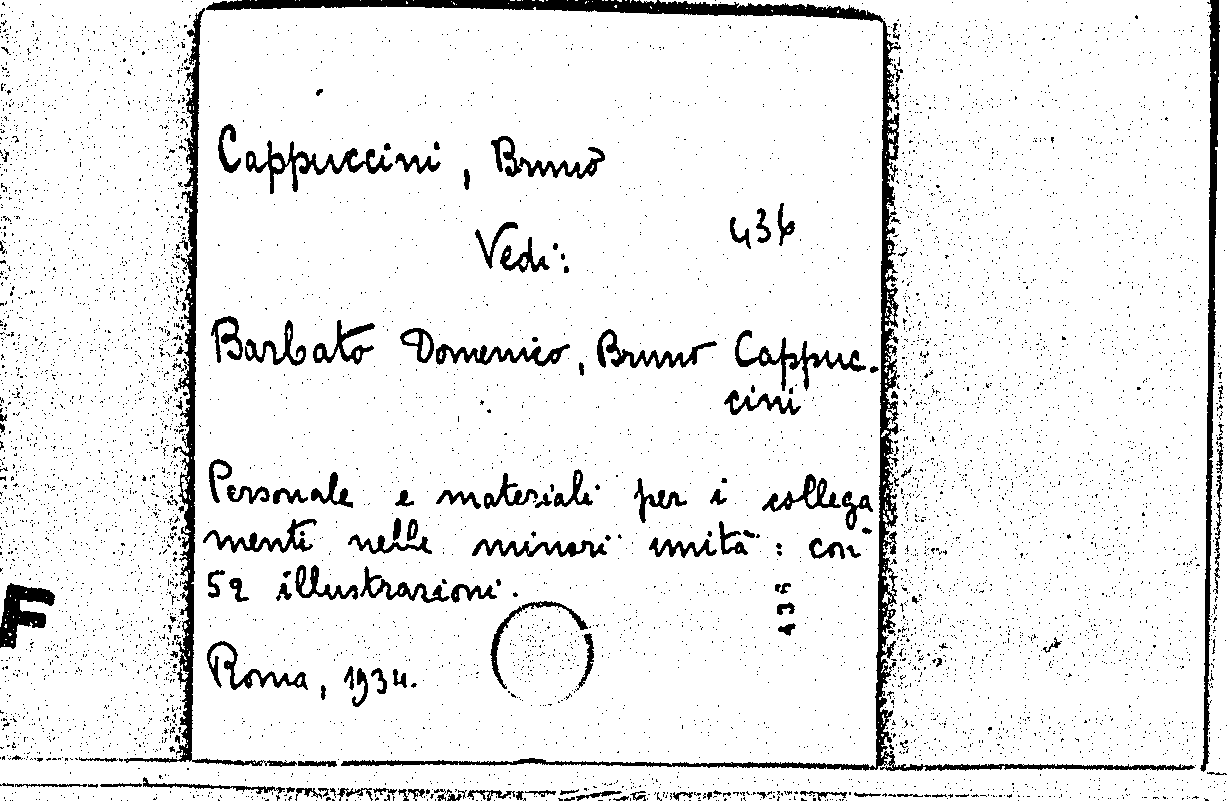 Cappuccini, Bruno
436
Vedi:
Barbato Domenico, Bruno Cappuc-
cini
Personale e materiali per i collega
menti nelle minori unità: con
52 illustrazioni.
Roma, 1934.
F